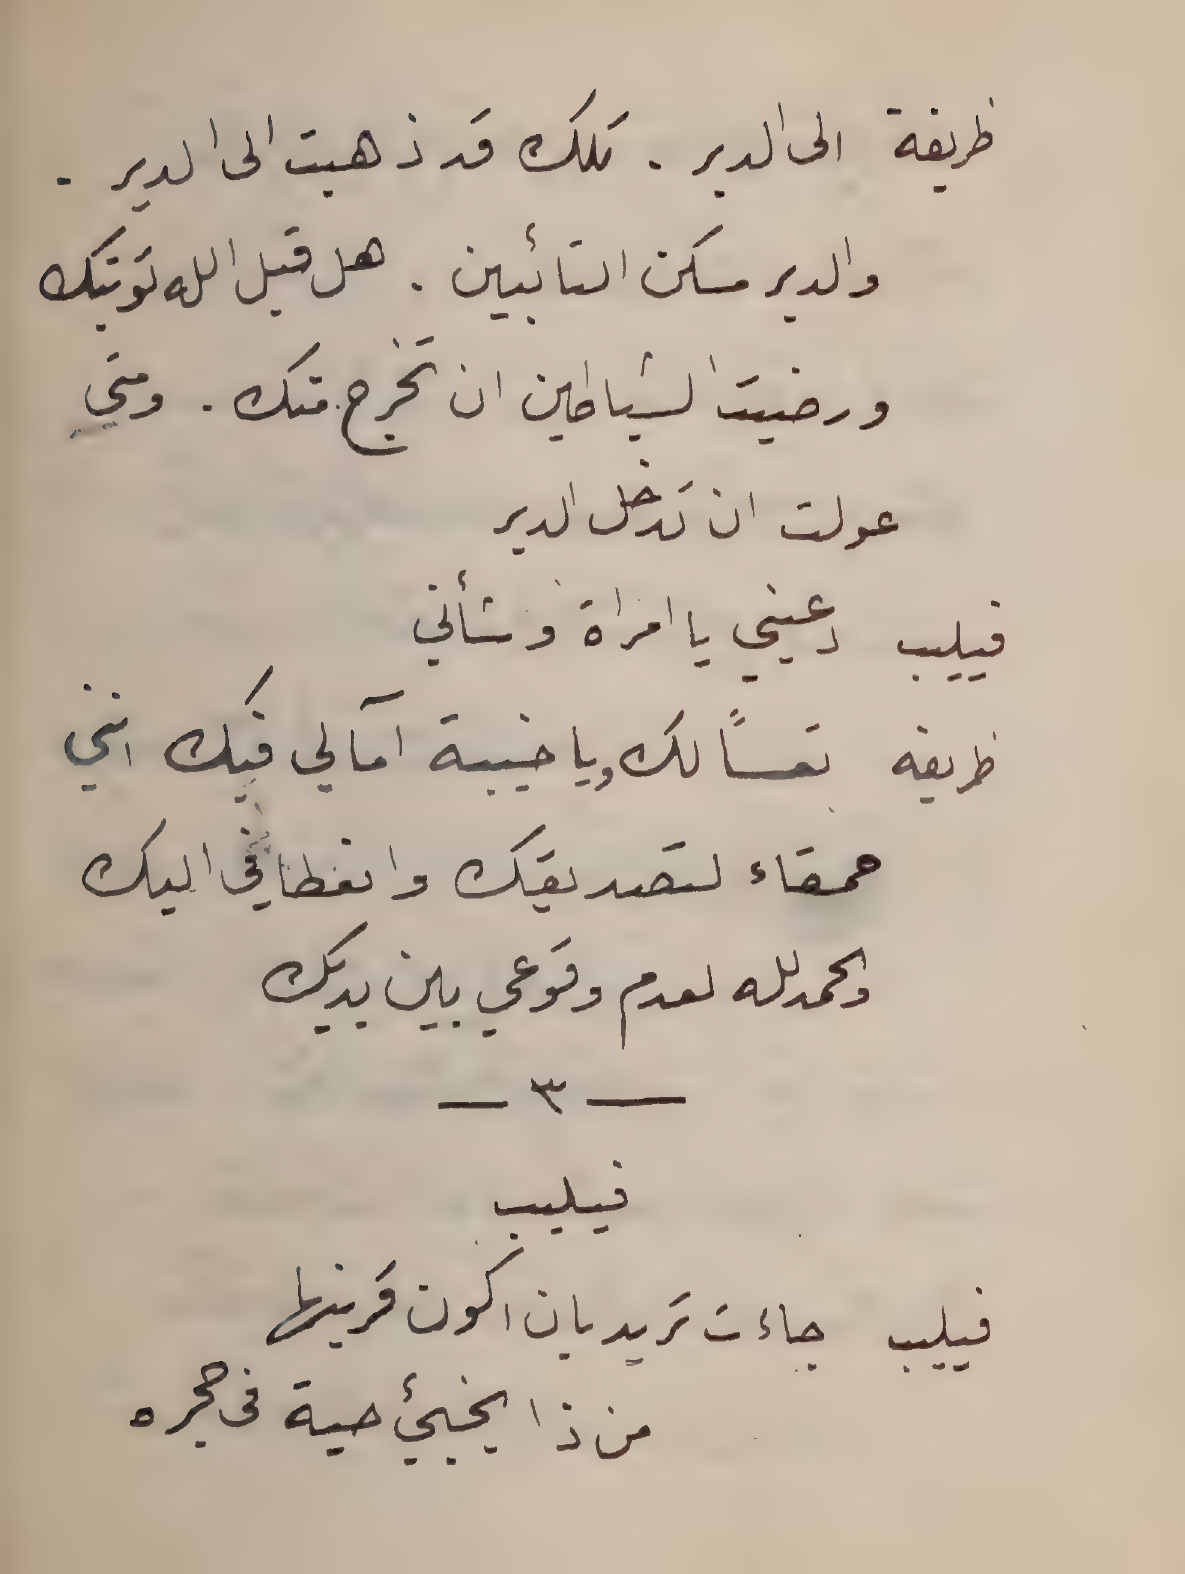 ظريفة الى الدير . تلك قد ذهبت الى الدير .
والدير مسكن التائبين . هل قبل الله توبتك
ورضيت الشياطين ان تخرج منك . ومتى
عولت ان تدخل الدير
فيليب دعيني يا امراة وشأني
ظريفه تعسًا لك ويا خيبة آمالي فيك انني
حمقاء لتصديقك وانعطافي اليك
والحمد لله لعدم وقوعي بين يديك
— ٣ —
فيليب
فيليب جاءت تريد بان اكون قرينها
من ذا يخبئ حية في حجره